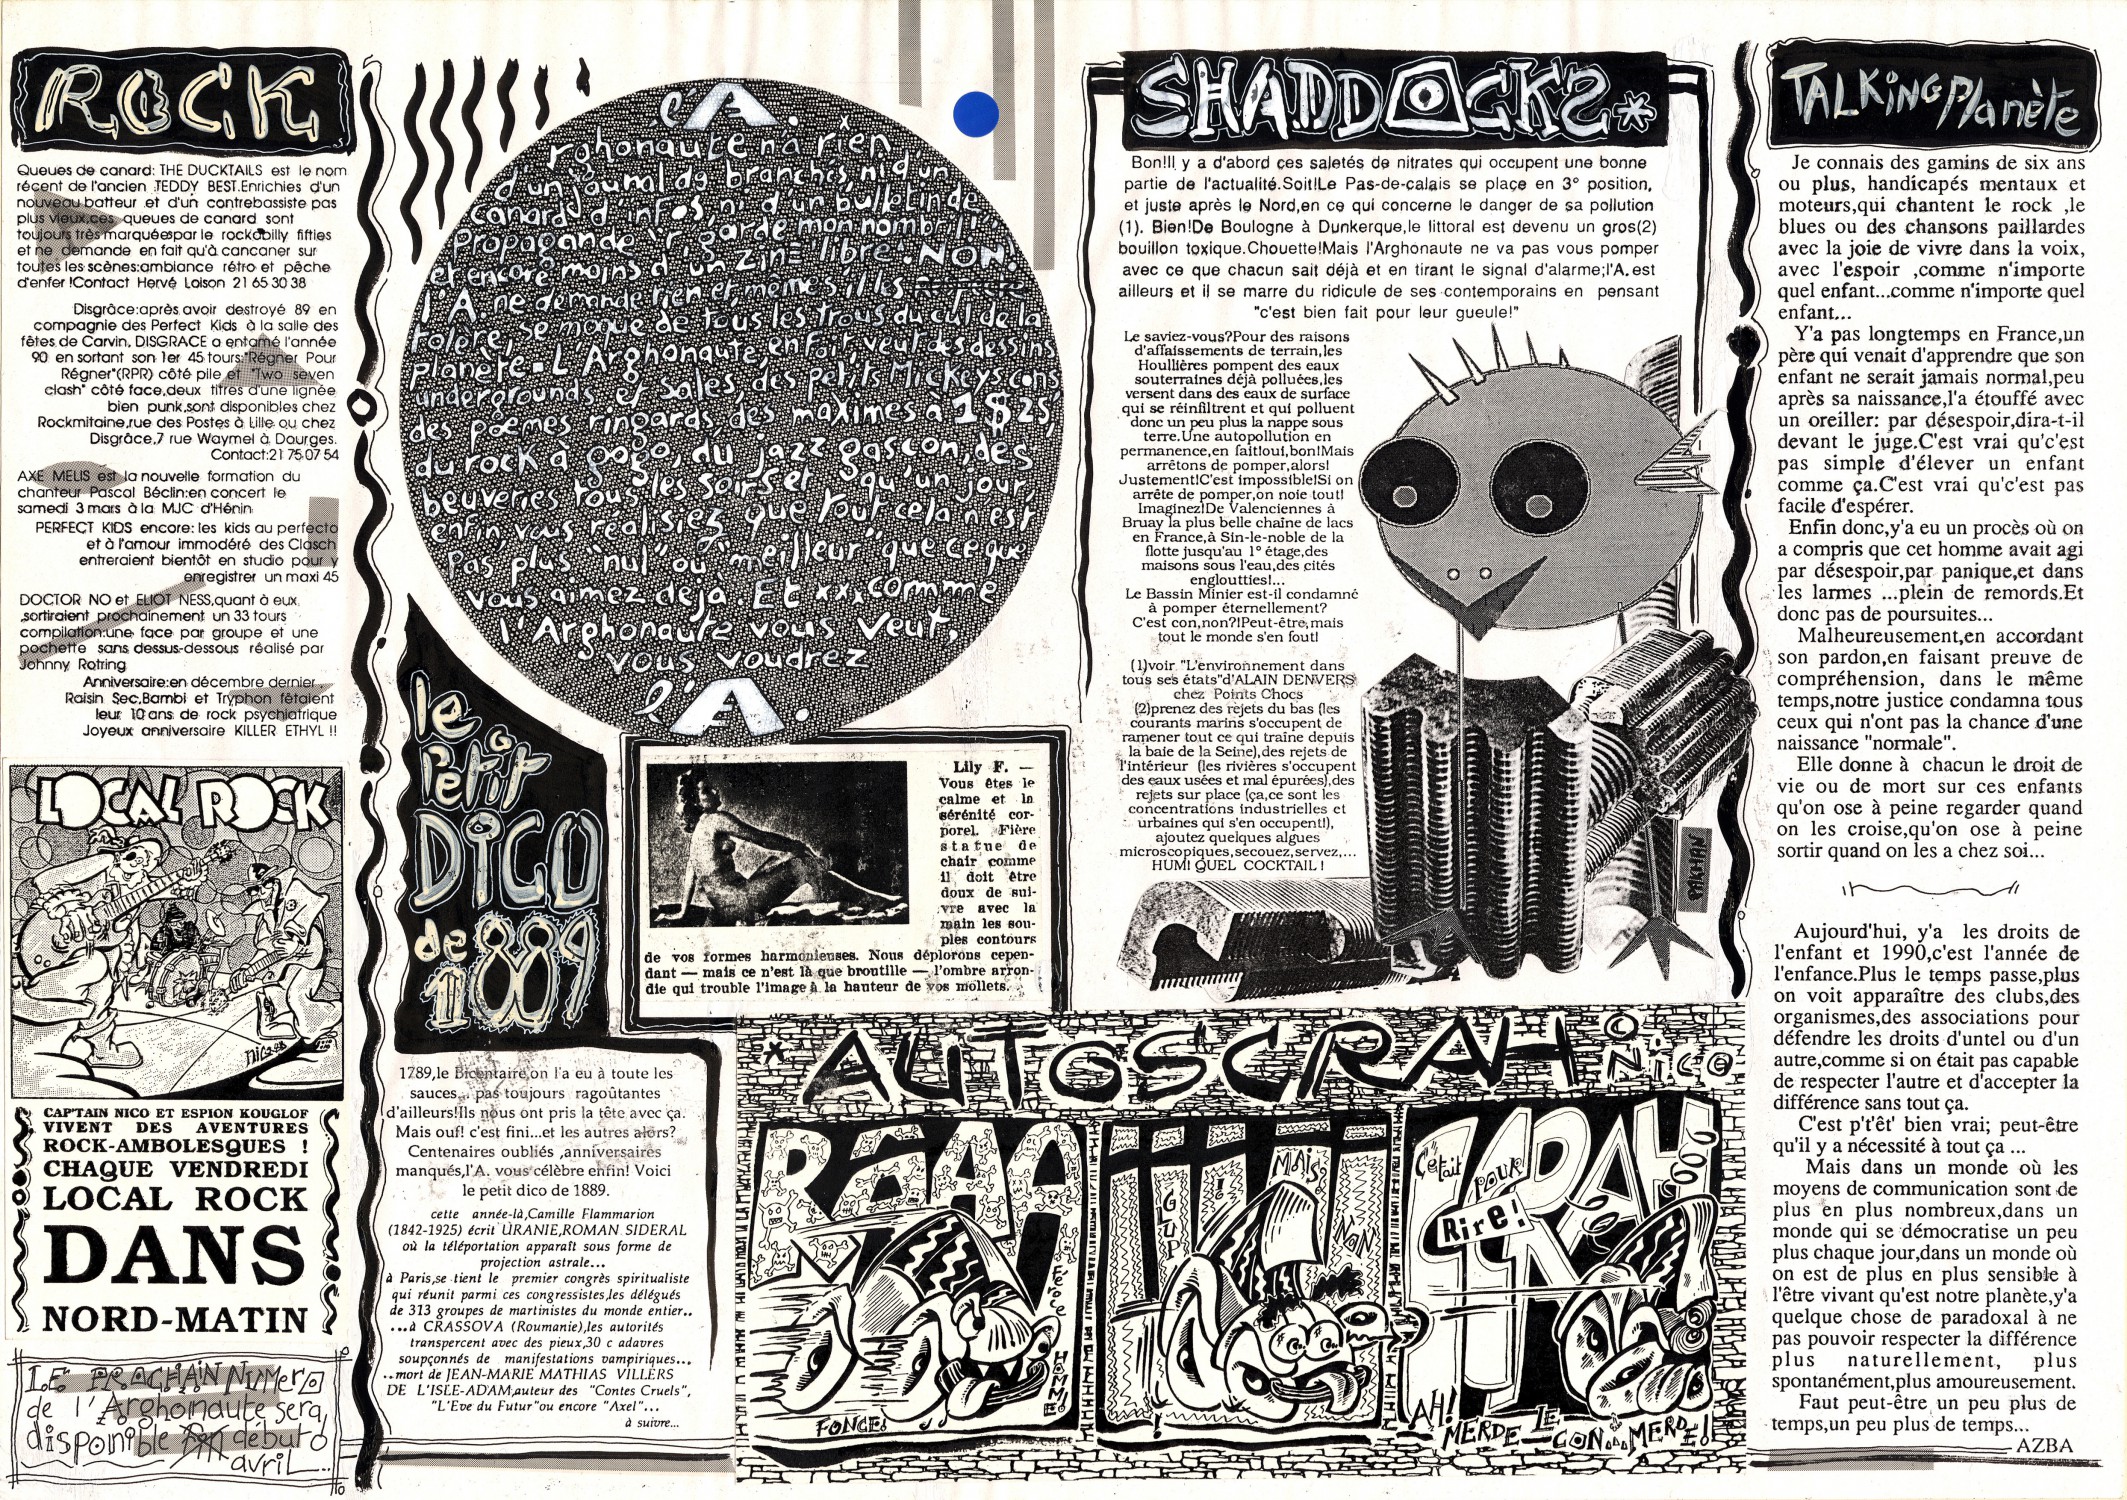 ROCK
Queues de canard: THE DUCKTAILS est le nom
récent de l'ancien TEDDY BEST.Enrichies d'un
nouveau batteur et d'un contrebassiste pas
plus vieux,ces queues de canard sont
toujours très marquéespar le rockabilly fifties
et ne demande en fait qu'à cancaner sur
toutes les scènes:ambiance rétro et pêche
d'enfer !Contact Hervé Loison 21 65 30 38
Disgrâce:après avoir destroyé 89 en
compagnie des Perfect Kids à la salle des
fêtes de Carvin, DISGRACE a entamé l'année
90 en sortant son 1er 45 tours:"Régner Pour
Régner"(RPR) côté pile et "Two seven
clash" côté face,deux titres d'une lignée
bien punk,sont disponibles chez
Rockmitaine,rue des Postes à Lille ou chez
Disgrâce,7 rue Waymel à Dourges.
Contact:21 75 07 54
AXE MELIS est la nouvelle formation du
chanteur Pascal Béclin:en concert le
samedi 3 mars à la MJC d'Hénin
PERFECT KIDS encore: les kids au perfecto
et à l'amour immodéré des Clasch
entreraient bientôt en studio pour y
enregistrer un maxi 45
DOCTOR NO et ELIOT NESS,quant à eux,
sortiraient prochainement un 33 tours
compilation:une face par groupe et une
pochette sans dessus-dessous réalisé par
Johnny Rotring
Anniversaire:en décembre dernier
Raisin Sec,Bambi et Tryphon fêtaient
leur 10 ans de rock psychiatrique
Joyeux anniversaire KILLER ETHYL !!
LOCAL ROCK
nico
CAP'TAIN NICO ET ESPION KOUGLOF
VIVENT DES AVENTURES
ROCK-AMBOLESQUES !
CHAQUE VENDREDI
LOCAL ROCK
DANS
NORD-MATIN
LE PROCHAIN NUMERO
de l'Arghonaute sera
disponible début
avril...
l'A.
rghonaute n'a rien
d'un journal de branchés, ni d'un
canard d'infos, ni d'un bulletin de
propagande "r'garde mon nombril"
et encore moins d'un zine libre. NON!
l'A. ne demande rien et, même s'il les
tolère, se moque de tous les trous du cul de la
planète. L'Arghonaute, en fait, veut des dessins
undergrounds et sales, des petits Mickeys cons,
des poèmes ringards, des maximes à 1$25,
du rock à gogo, du jazz gascon, des
beuveries tous les soirs et qu'un jour,
enfin, vous réalisiez que tout cela n'est
pas plus "nul" ou "meilleur" que ce que
vous aimez déjà. Et xxx comme
l'Arghonaute vous veut,
vous voudrez
l'A.
le
Petit
DICO
de
1889
Lily F. —
Vous êtes le
calme et la
sérénité cor-
porel. Fière
statue de
chair comme
il doit être
doux de sui-
vre avec la
main les sou-
ples contours
de vos formes harmonieuses. Nous déplorons cepen-
dant — mais ce n'est là que broutille — l'ombre arron-
die qui trouble l'image à la hauteur de vos mollets.
1789,le Bicentaire,on l'a eu à toute les
sauces... pas toujours ragoûtantes
d'ailleurs!Ils nous ont pris la tête avec ça.
Mais ouf! c'est fini...et les autres alors?
Centenaires oubliés ,anniversaires
manqués,l'A. vous célèbre enfin! Voici
le petit dico de 1889.
cette année-là,Camille Flammarion
(1842-1925) écrit URANIE,ROMAN SIDERAL
où la téléportation apparaît sous forme de
projection astrale...
à Paris,se tient le premier congrès spiritualiste
qui réunit parmi ces congressistes,les délégués
de 313 groupes de martinistes du monde entier..
...à CRASSOVA (Roumanie),les autorités
transpercent avec des pieux,30 c adavres
soupçonnés de manifestations vampiriques...
..mort de JEAN-MARIE MATHIAS VILLERS
DE L'ISLE-ADAM,auteur des "Contes Cruels",
"L'Eve du Futur"ou encore "Axel"...
à suivre...
SHADDOCKS*
Bon!Il y a d'abord ces saletés de nitrates qui occupent une bonne
partie de l'actualité.Soit!Le Pas-de-calais se place en 3° position,
et juste après le Nord,en ce qui concerne le danger de sa pollution
(1). Bien!De Boulogne à Dunkerque,le littoral est devenu un gros(2)
bouillon toxique.Chouette!Mais l'Arghonaute ne va pas vous pomper
avec ce que chacun sait déjà et en tirant le signal d'alarme;l'A.est
ailleurs et il se marre du ridicule de ses contemporains en pensant
"c'est bien fait pour leur gueule!"
Le saviez-vous?Pour des raisons
d'affaissements de terrain,les
Houllières pompent des eaux
souterraines déjà polluées,les
versent dans des eaux de surface
qui se réinfiltrent et qui polluent
donc un peu plus la nappe sous
terre.Une autopollution en
permanence,en fait!oui,bon!Mais
arrêtons de pomper,alors!
Justement!C'est impossible!Si on
arrête de pomper,on noie tout!
Imaginez!De Valenciennes à
Bruay la plus belle chaîne de lacs
en France,à Sin-le-noble de la
flotte jusqu'au 1° étage,des
maisons sous l'eau,des cités
englouties!...
Le Bassin Minier est-il condamné
à pomper éternellement?
C'est con,non?!Peut-être,mais
tout le monde s'en fout!
(1)voir "L'environnement dans
tous ses états"d'ALAIN DENVERS
chez Points Chocs
(2)prenez des rejets du bas (les
courants marins s'occupent de
ramener tout ce qui traîne depuis
la baie de la Seine),des rejets de
l'intérieur (les rivières s'occupent
des eaux usées et mal épurées),des
rejets sur place (ça,ce sont les
concentrations industrielles et
urbaines qui s'en occupent!),
ajoutez quelques algues
microscopiques,secouez,servez,...
HUM! QUEL COCKTAIL !
* AUTOSCRAH
© NICO
RAAA
Féroce
HOMME!
FONCE!
IIIIII
GLUP
!
MAIS
NON
!
SCRAH
C'était
pour
Rire!
AH! MERDE LE CON... MERDE!
TALKING Planète
Je connais des gamins de six ans
ou plus, handicapés mentaux et
moteurs,qui chantent le rock ,le
blues ou des chansons paillardes
avec la joie de vivre dans la voix,
avec l'espoir ,comme n'importe
quel enfant...comme n'importe quel
enfant...
Y'a pas longtemps en France,un
père qui venait d'apprendre que son
enfant ne serait jamais normal,peu
après sa naissance,l'a étouffé avec
un oreiller: par désespoir,dira-t-il
devant le juge.C'est vrai qu'c'est
pas simple d'élever un enfant
comme ça.C'est vrai qu'c'est pas
facile d'espérer.
Enfin donc,y'a eu un procès où on
a compris que cet homme avait agi
par désespoir,par panique,et dans
les larmes ...plein de remords.Et
donc pas de poursuites...
Malheureusement,en accordant
son pardon,en faisant preuve de
compréhension, dans le même
temps,notre justice condamna tous
ceux qui n'ont pas la chance d'une
naissance "normale".
Elle donne à chacun le droit de
vie ou de mort sur ces enfants
qu'on ose à peine regarder quand
on les croise,qu'on ose à peine
sortir quand on les a chez soi...
Aujourd'hui, y'a les droits de
l'enfant et 1990,c'est l'année de
l'enfance.Plus le temps passe,plus
on voit apparaître des clubs,des
organismes,des associations pour
défendre les droits d'untel ou d'un
autre,comme si on était pas capable
de respecter l'autre et d'accepter la
différence sans tout ça.
C'est p't'êt' bien vrai; peut-être
qu'il y a nécessité à tout ça ...
Mais dans un monde où les
moyens de communication sont de
plus en plus nombreux,dans un
monde qui se démocratise un peu
plus chaque jour,dans un monde où
on est de plus en plus sensible à
l'être vivant qu'est notre planète,y'a
quelque chose de paradoxal à ne
pas pouvoir respecter la différence
plus naturellement, plus
spontanément,plus amoureusement.
Faut peut-être un peu plus de
temps,un peu plus de temps...
AZBA